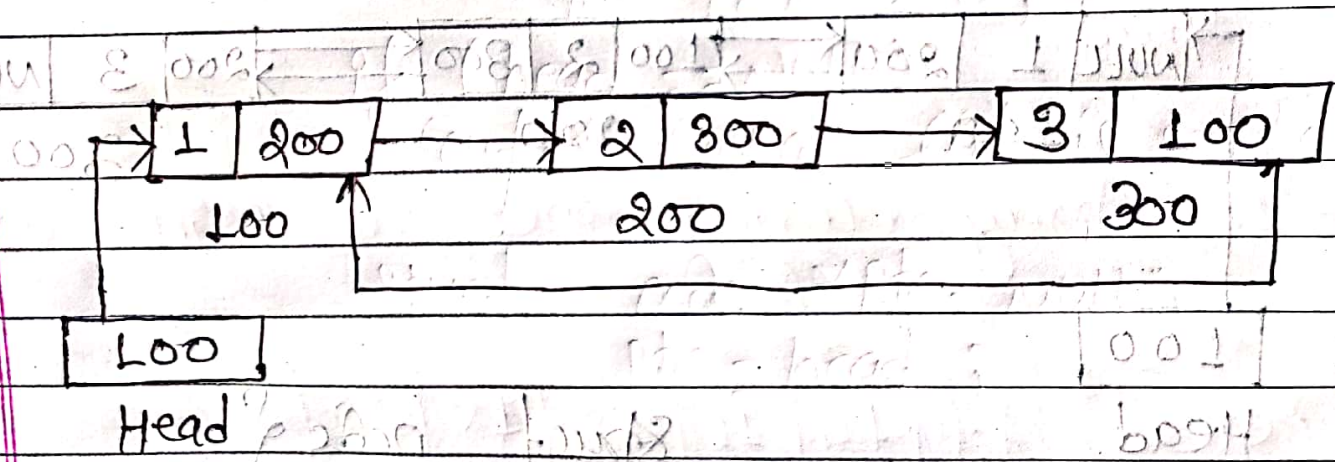 1 200 2 300 3 100
100 200 300
100
Head